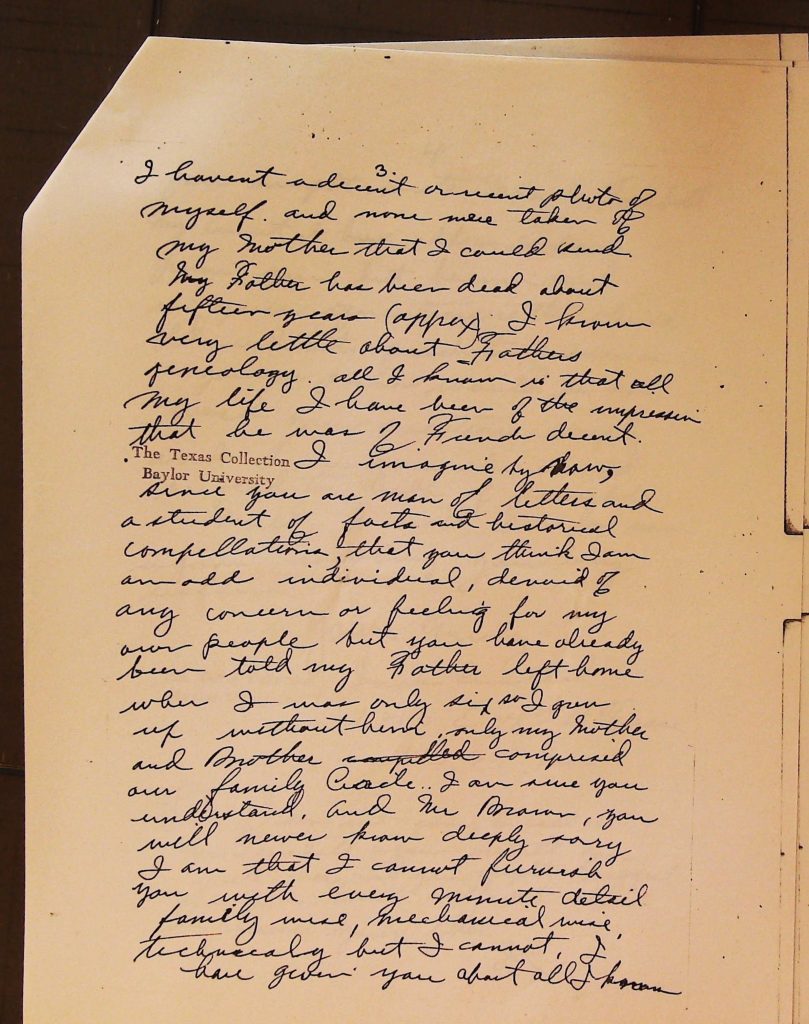 3.
I havent a decent or recent photo of
myself. and none were taken of
my Mother that I could send.
My Father has been dead about
fifteen years (appox). I know
very little about Fathers
geneology. all I know is that all
my life I have been of the impression
that he was of French decent.
The Texas Collection
Baylor University
I imagine by now,
since you are man of letters and
a student of facts and historical
compellations, that you think I am
an odd individual, devoid of
any concern or feeling for my
own people but you have already
been told my Father left home
when I was only six so I grew
up without him. only my Mother
and Brother compilled comprised
our family Circle.. I am sure you
understand. And Mr Brown, you
will never know deeply sorry
I am that I cannot furnish
you with every minute detail
family wise, mechanical wise,
technicaly but I cannot, I
have given you about all I know